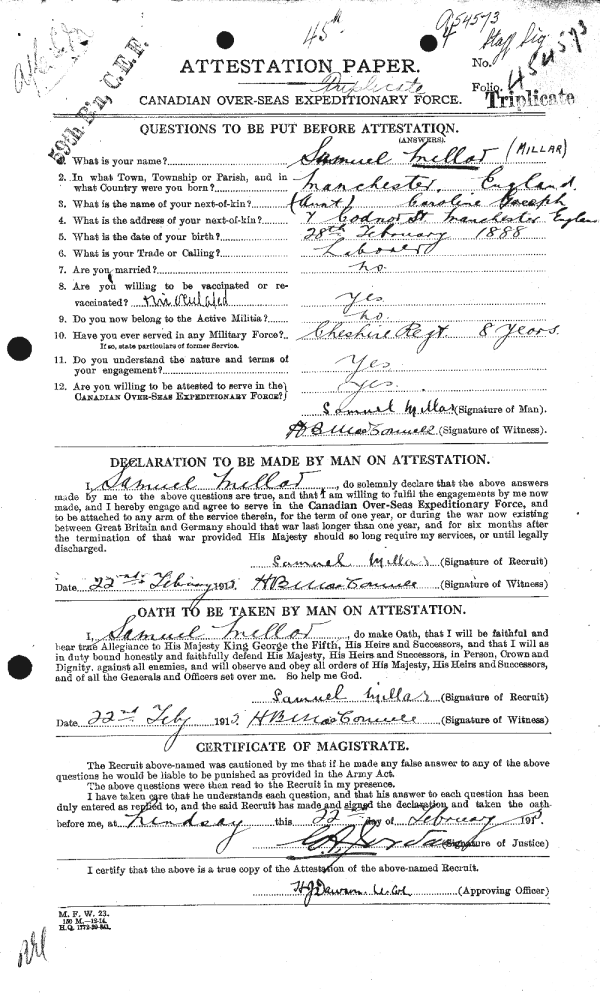 45th
A54573
Staff Sig
ATTESTATION PAPER.
No. 454573
Duplicate
Folio.
Triplicate
59th B'n, C.E.F.
CANADIAN OVER-SEAS EXPEDITIONARY FORCE.
QUESTIONS TO BE PUT BEFORE ATTESTATION.
(ANSWERS).
1. What is your name? Samuel Millar (MILLAR)
2. In what Town, Township or Parish, and in
what Country were you born? Manchester, England.
3. What is the name of your next-of-kin? (Aunt) Caroline Joseph
4. What is the address of your next-of-kin? 7 Codnor St Manchester England
5. What is the date of your birth? 28th February 1888
6. What is your Trade or Calling? Laborer
7. Are you married? no.
8. Are you willing to be vaccinated or re-
vaccinated? + inoculated yes
9. Do you now belong to the Active Militia? no.
10. Have you ever served in any Military Force? Cheshire Regt 8 years.
If so, state particulars of former Service.
11. Do you understand the nature and terms of
your engagement? Yes
12. Are you willing to be attested to serve in the
CANADIAN OVER-SEAS EXPEDITIONARY FORCE? yes.
Samuel Millar (Signature of Man).
H B MacConnell (Signature of Witness).
DECLARATION TO BE MADE BY MAN ON ATTESTATION.
I, Samuel Millar, do solemnly declare that the above answers
made by me to the above questions are true, and that I am willing to fulfil the engagements by me now
made, and I hereby engage and agree to serve in the Canadian Over-Seas Expeditionary Force, and
to be attached to any arm of the service therein, for the term of one year, or during the war now existing
between Great Britain and Germany should that war last longer than one year, and for six months after
the termination of that war provided His Majesty should so long require my services, or until legally
discharged.
Samuel Millar (Signature of Recruit)
Date 22nd February 1915. H B MacConnell (Signature of Witness)
OATH TO BE TAKEN BY MAN ON ATTESTATION.
I, Samuel Millar, do make Oath, that I will be faithful and
bear true Allegiance to His Majesty King George the Fifth, His Heirs and Successors, and that I will as
in duty bound honestly and faithfully defend His Majesty, His Heirs and Successors, in Person, Crown and
Dignity, against all enemies, and will observe and obey all orders of His Majesty, His Heirs and Successors,
and of all the Generals and Officers set over me. So help me God.
Samuel Millar (Signature of Recruit)
Date 22nd Feby 1915. H B MacConnell (Signature of Witness)
CERTIFICATE OF MAGISTRATE.
The Recruit above-named was cautioned by me that if he made any false answer to any of the above
questions he would be liable to be punished as provided in the Army Act.
The above questions were then read to the Recruit in my presence.
I have taken care that he understands each question, and that his answer to each question has been
duly entered as replied to, and the said Recruit has made and signed the declaration and taken the oath
before me, at Lindsay this 22nd day of February 1915.
(Signature of Justice)
I certify that the above is a true copy of the Attestation of the above-named Recruit.
H J Dawson Lt. Col (Approving Officer)
M. F. W. 23.
150 M.—12-14.
H.Q. 1772-39-841.